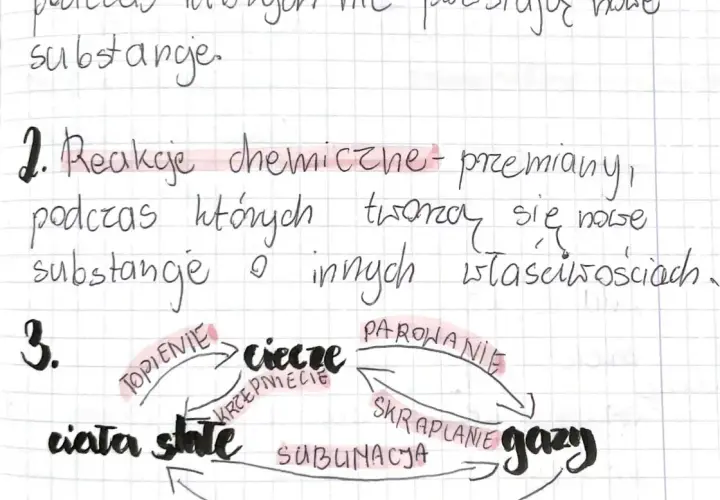 podczas których nie powstają nowe
substancje.
2. Reakcje chemiczne - przemiany,
podczas których tworzą się nowe
substancje o innych właściwościach.
3.
TOPIENIE
ciecze
PAROWANIE
KRZEPNIĘCIE
SKRAPLANIE
ciała stałe
SUBLIMACJA
gazy